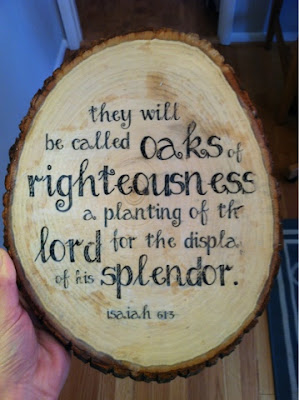 they will
be called oaks of
righteousness
a planting of th
lord for the displa
of his splendor.
isaiah 61:3